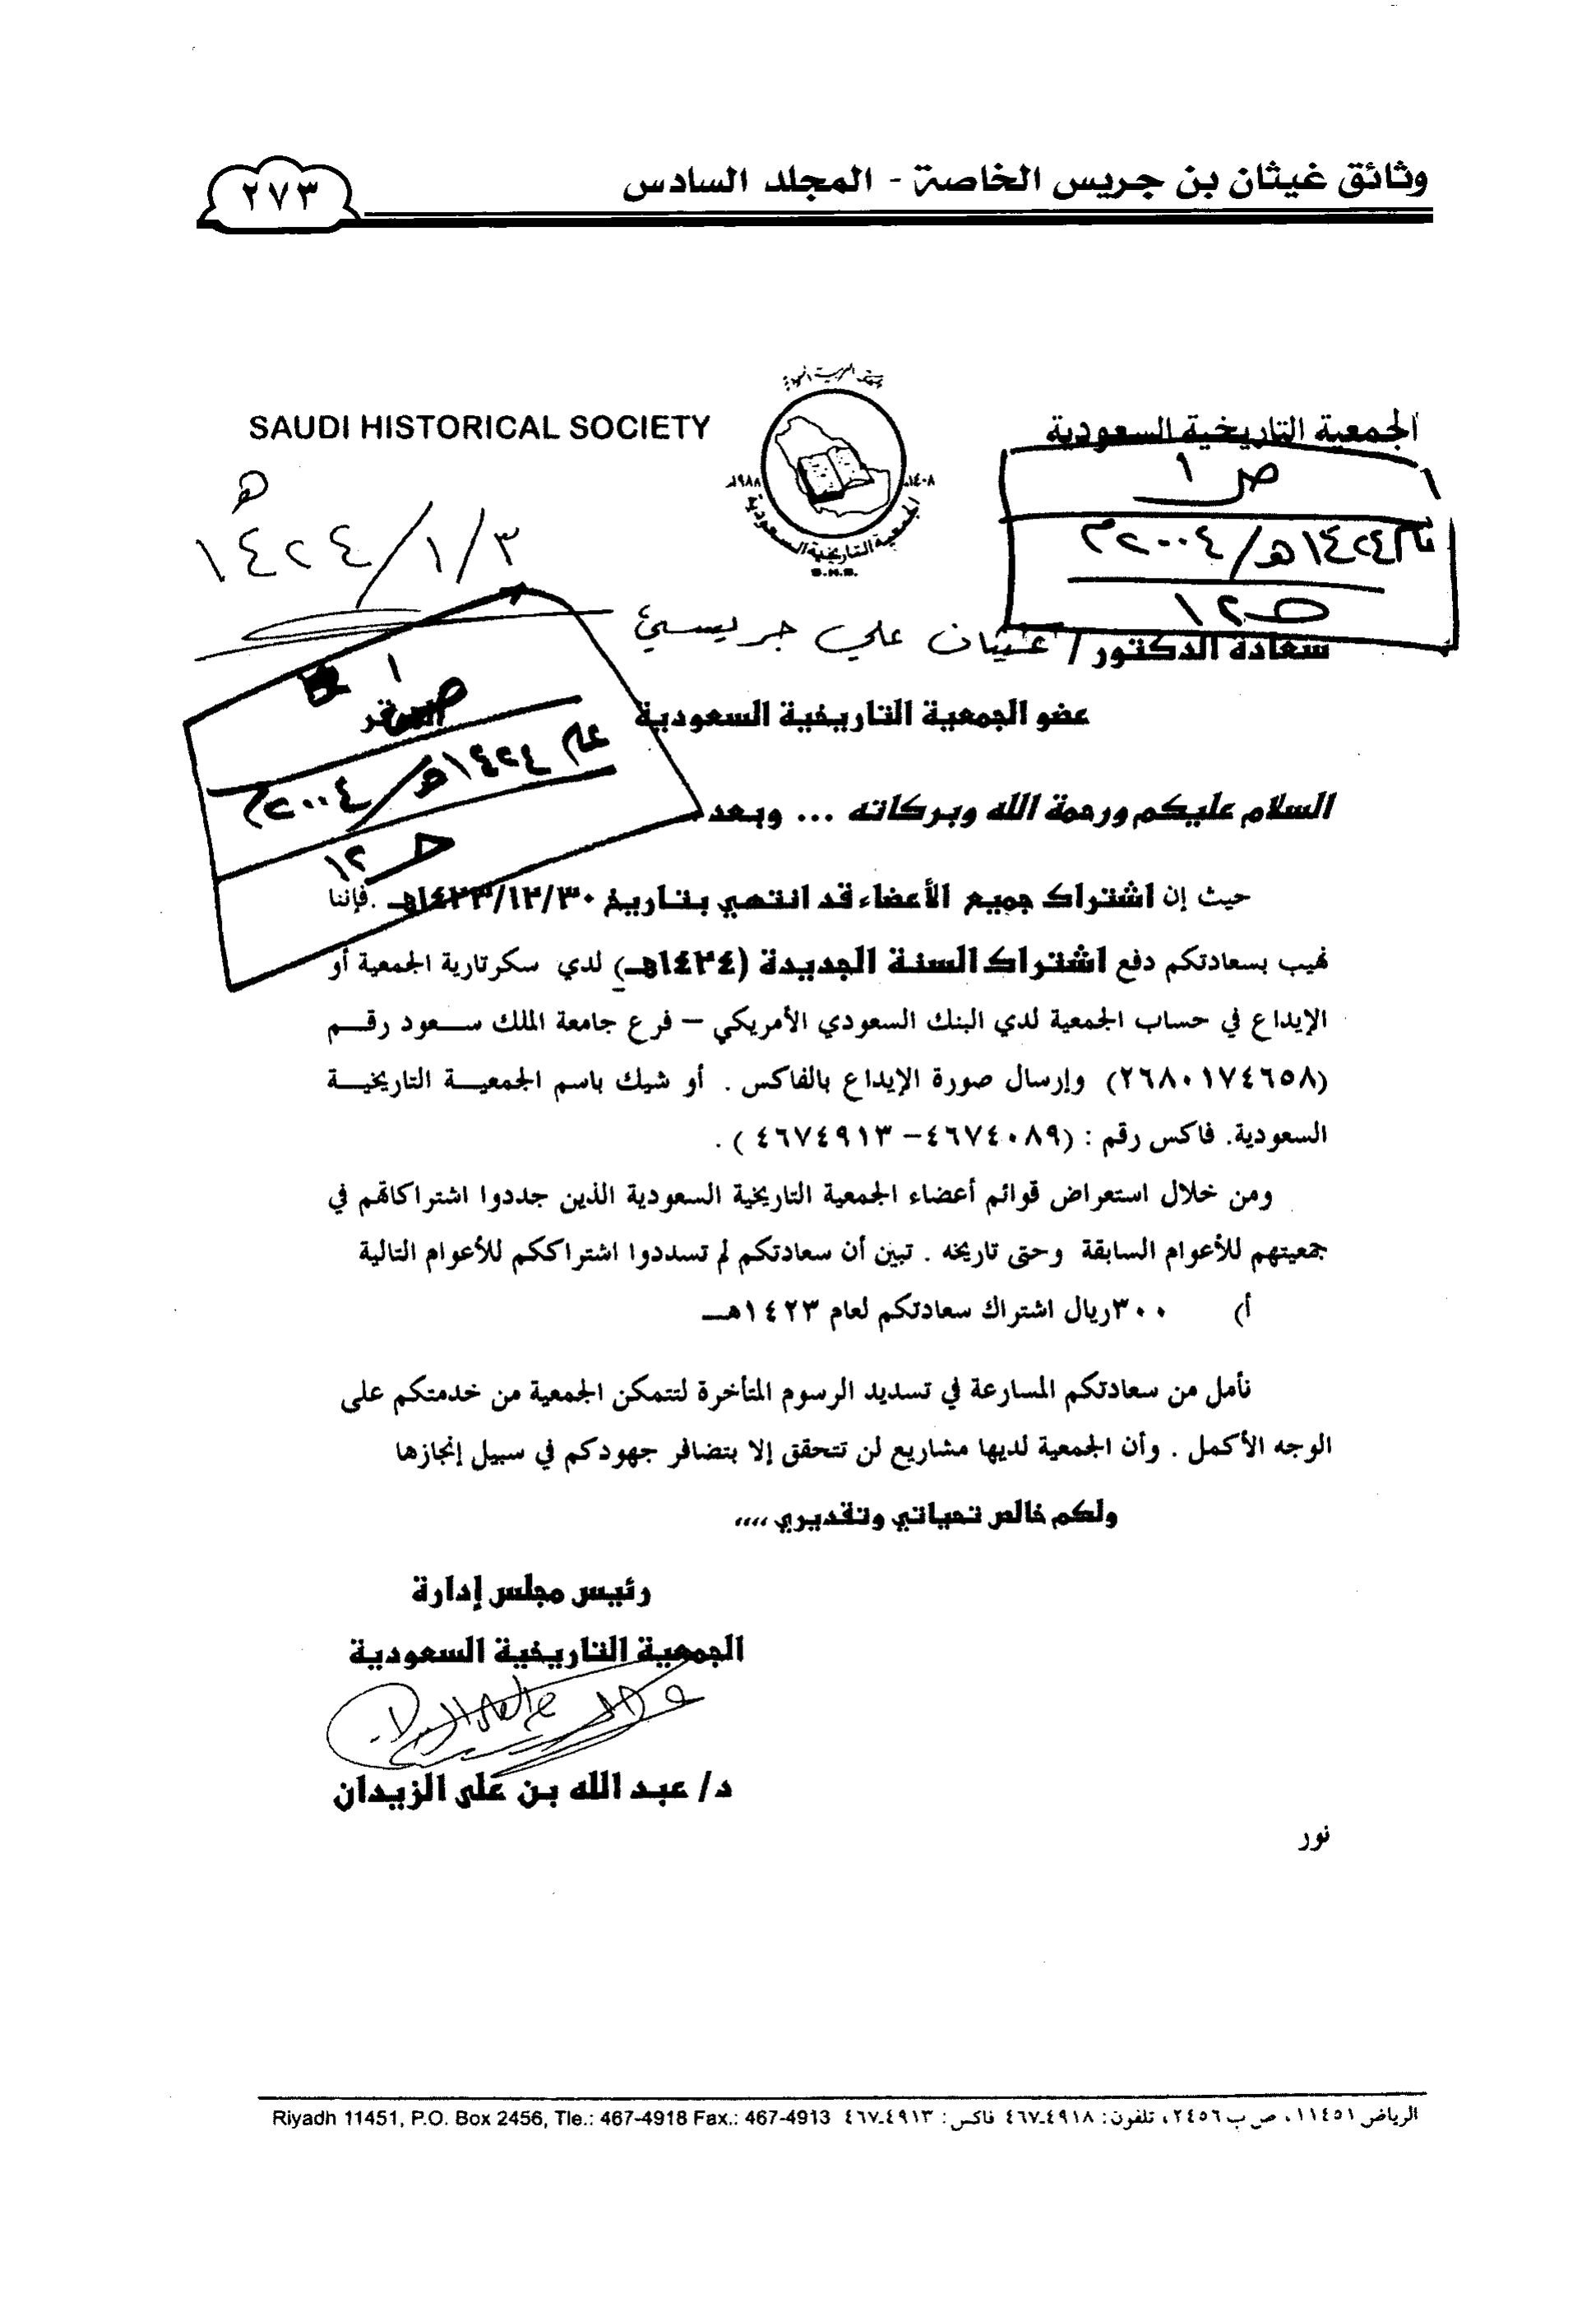 وثائق غيثان بن جريس الخاصة - المجلد السادس
٢٧٣
الجمعية التاريخية السعودية
SAUDI HISTORICAL SOCIETY
١٤٠٨هـ
١٩٨٨م
الجمعية التاريخية السعودية
S.H.S.
ص ١
١٤٢٤هـ/٢٠٠٤م
ص١٢
١٤٢٤/١/٣ هـ
سعادة الدكتور / غيثان علي جريس
عضو الجمعية التاريخية السعودية
الموقر
ص ١
عام ١٤٢٤هـ/٢٠٠٤م
السلام عليكم ورحمة الله وبركاته ... وبعد
حيث إن اشتراك جميع الأعضاء قد انتهي بتاريخ ١٤٢٣/١٢/٣٠هـ .فإننا
نهيب بسعادتكم دفع اشتراك السنة الجديدة (١٤٢٤هـ) لدي سكرتارية الجمعية أو
الإيداع في حساب الجمعية لدي البنك السعودي الأمريكي – فرع جامعة الملك سعود رقم
(٢٦٨٠١٧٤٦٥٨) وإرسال صورة الإيداع بالفاكس . أو شيك باسم الجمعية التاريخية
السعودية. فاكس رقم : (٤٦٧٤٠٨٩– ٤٦٧٤٩١٣ ) .
ومن خلال استعراض قوائم أعضاء الجمعية التاريخية السعودية الذين جددوا اشتراكاتهم في
جمعيتهم للأعوام السابقة وحتى تاريخه . تبين أن سعادتكم لم تسددوا اشتراككم للأعوام التالية
أ) ٣٠٠ريال اشتراك سعادتكم لعام ١٤٢٣هـ
نأمل من سعادتكم المسارعة في تسديد الرسوم المتأخرة لتتمكن الجمعية من خدمتكم على
الوجه الأكمل . وأن الجمعية لديها مشاريع لن تتحقق إلا بتضافر جهودكم في سبيل إنجازها
ولكم خالص تحياتي وتقديري ،،،،
رئيس مجلس إدارة
الجمعية التاريخية السعودية
د/ عبد الله بن على الزيدان
نور
الرياض ١١٤٥١ ، ص ب ٢٤٥٦ ، تلفون: ٤٩١٨-٤٦٧ فاكس: ٤٩١٣-٤٦٧ Riyadh 11451, P.O. Box 2456, Tle.: 467-4918 Fax.: 467-4913